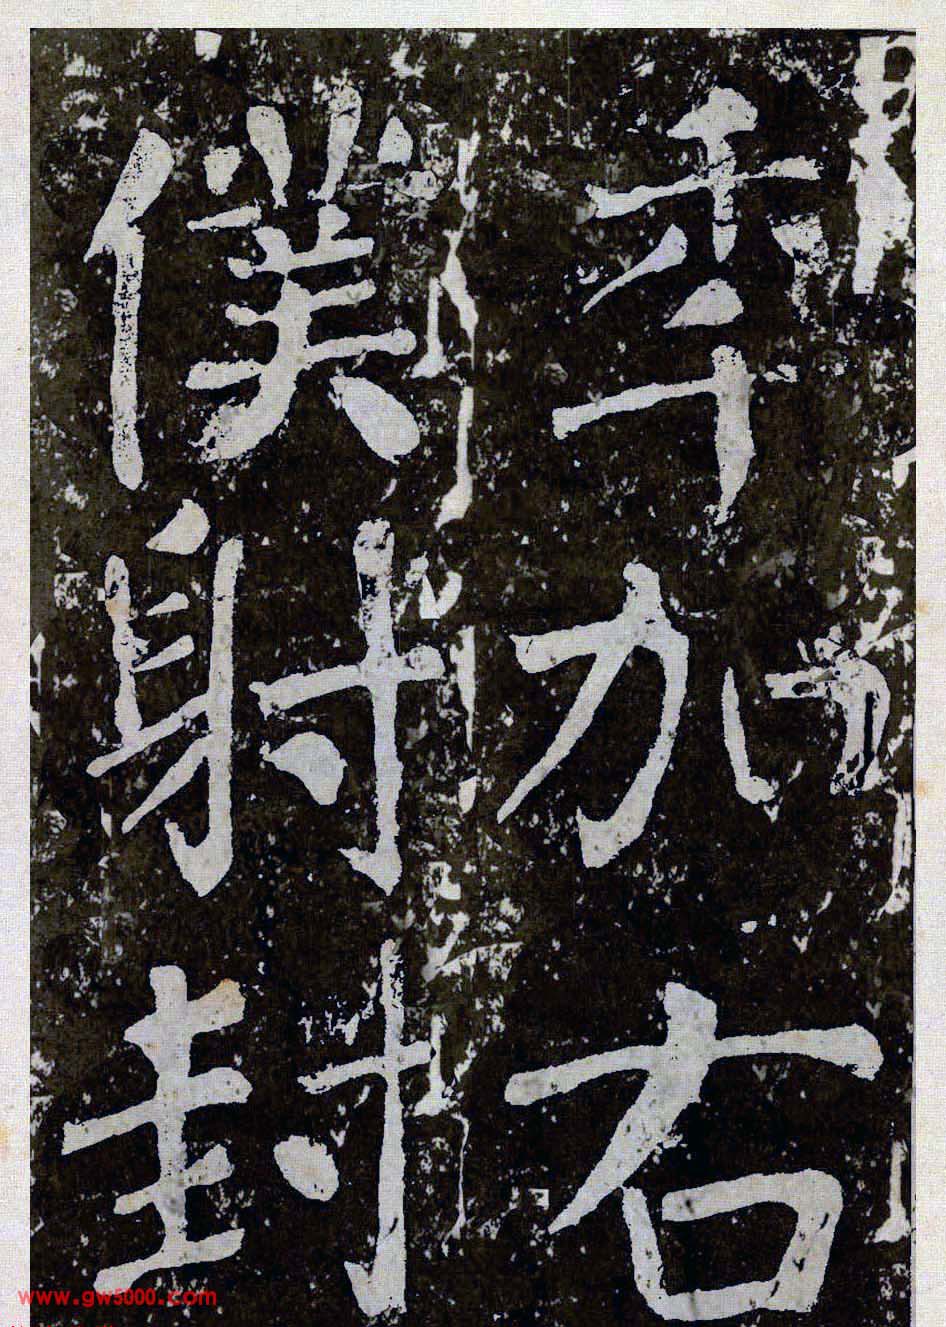 秊加右
僕射封
www.gw5000.com